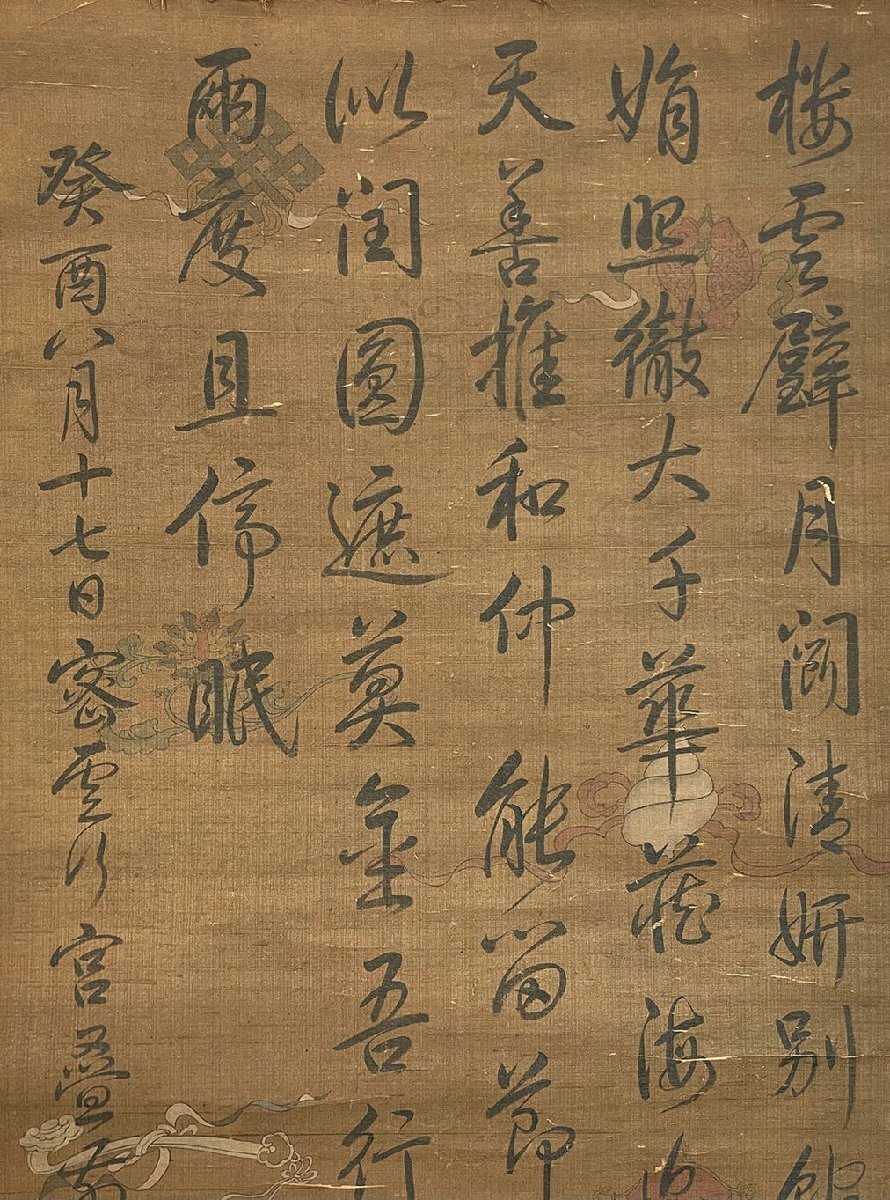 雲璧月清妍別
娟照徹大千華藏海
天善推和仲能留節
似閏圓遮莫金吾行
兩度且停眠
癸酉八月十七日密雲行宮疊前